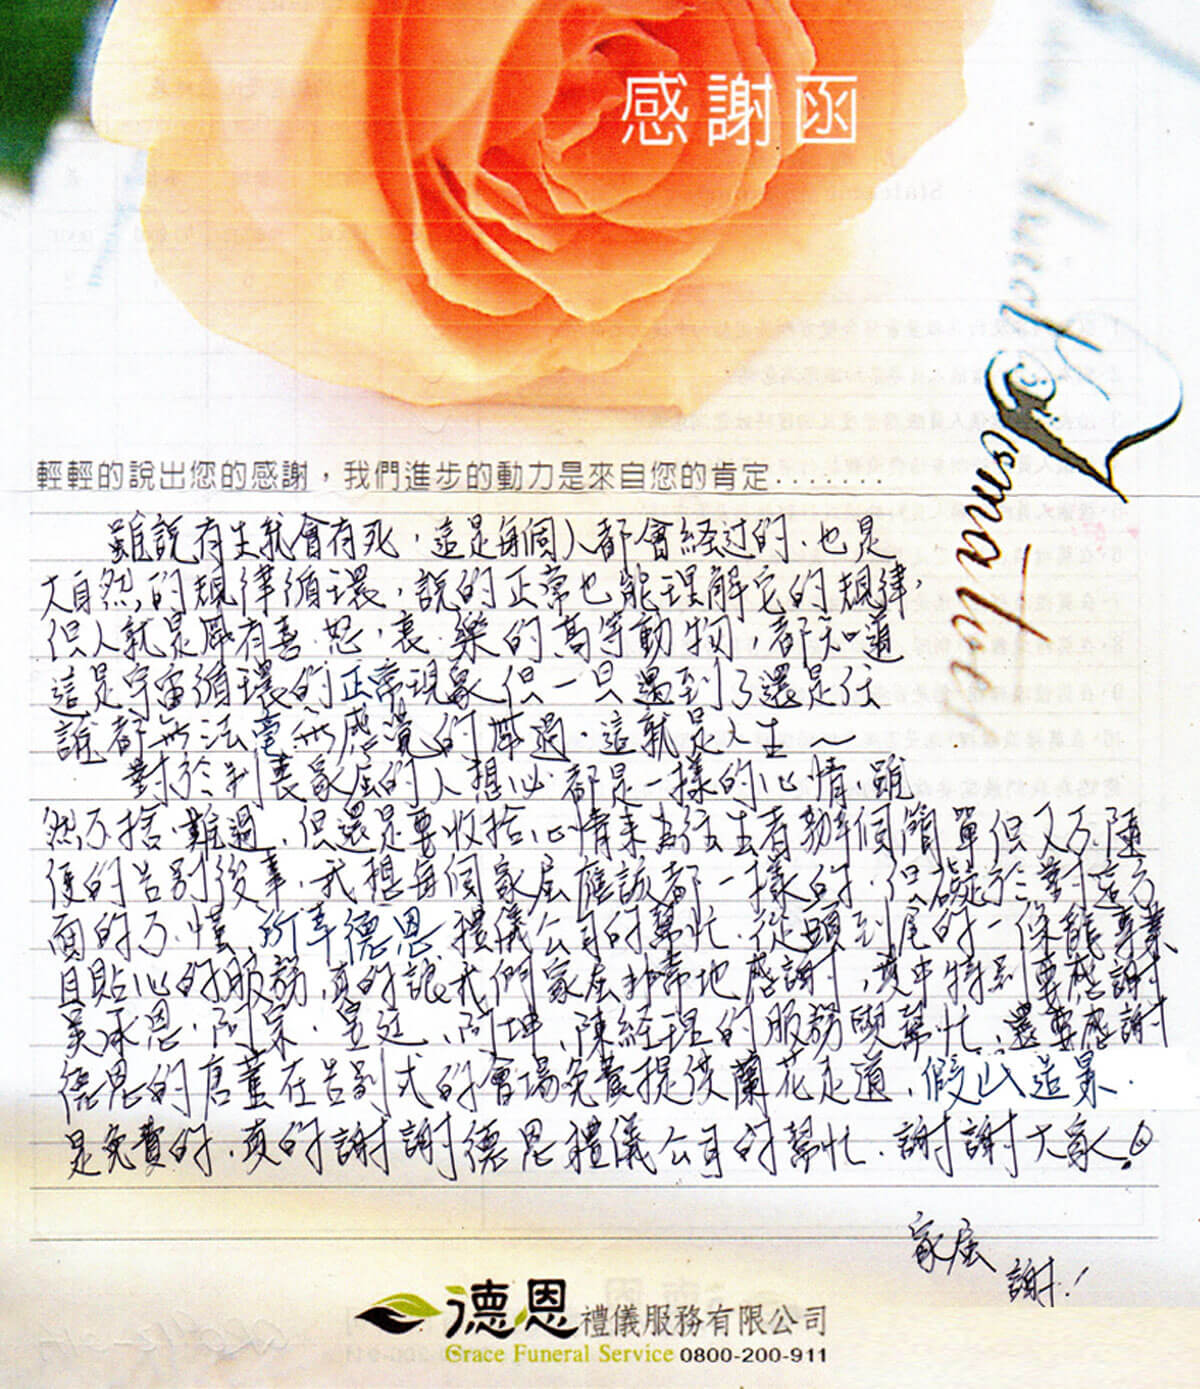 感謝函
輕輕的說出您的感謝，我們進步的動力是來自您的肯定.......
雖說有生就會有死，這是每個人都會経过的，也是
大自然的規律循環，說的正常也能理解它的規律，
但人就是屬有喜、怒、哀、樂的高等動物，都知道
這是宇宙循環的正常現象但一旦遇到了還是任
誰都無法毫無感覺的度過，這就是人生～
對於判喪家屬的人想必都是一樣的心情，雖
然不捨、難過，但還是要收拾心情来為往生者辦個簡單但又不隨
便的告別後事，我想每個家屬應該都一樣的，但礙於對這方
面的不懂，所幸德恩禮儀公司的幫忙，從頭到尾的一條龍專業
且貼心的服務，真的讓我們家屬非常地感謝，其中特別要感謝
吳承恩、阿宗、昱廷、阿坤、陳経理的服務與幫忙，還要感謝
德恩的唐董在告別式的會場免費提供蘭花走道，假山造景，
是免費的，真的謝謝德恩禮儀公司的幫忙，謝謝大家！
家屬
謝！
德恩禮儀服務有限公司
Grace Funeral Service 0800-200-911